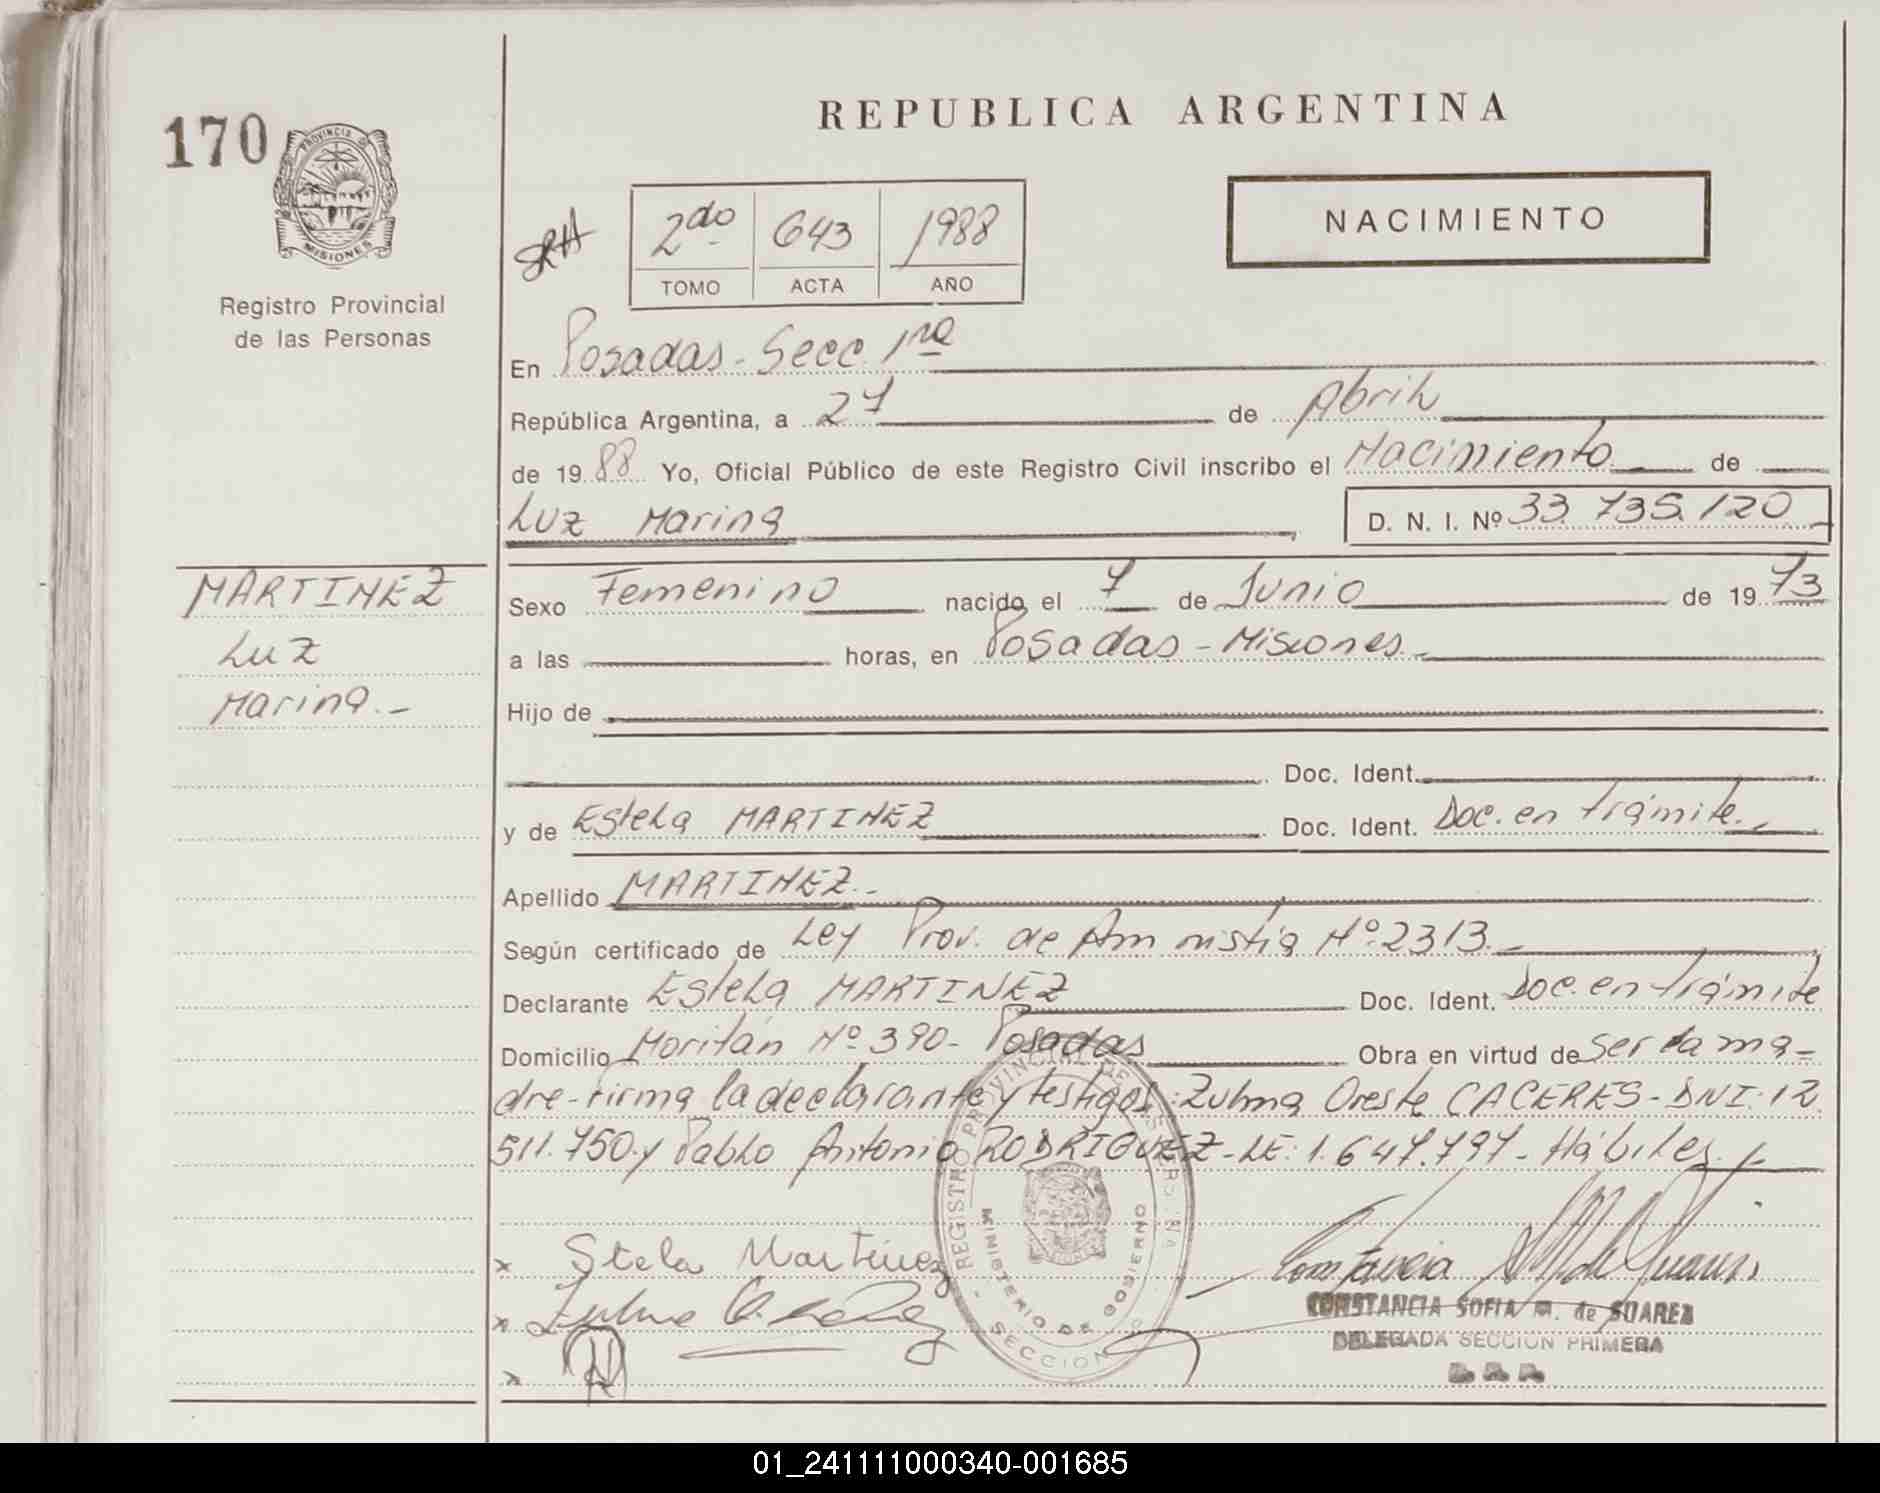 170
PROVINCIA DE
MISIONES
Registro Provincial
de las Personas
REPUBLICA ARGENTINA
2do 643 1988
TOMO ACTA AÑO
NACIMIENTO
En Posadas - Secc. 1ra
República Argentina, a 27 de Abril
de 1988 Yo, Oficial Público de este Registro Civil inscribo el Nacimiento de
Luz Marina
D. N. I. Nº 33.735.120
MARTINEZ
Luz
Marina.-
Sexo Femenino nacido el 7 de Junio de 1973
a las horas, en Posadas - Misiones.-
Hijo de
Doc. Ident.
y de Estela MARTINEZ Doc. Ident. Doc. en trámite.-
Apellido MARTINEZ.-
Según certificado de Ley Prov. de Amnistía Nº 2313.-
Declarante Estela MARTINEZ Doc. Ident. Doc. en trámite
Domicilio Moritán Nº 390- Posadas Obra en virtud de ser la ma-
dre-firma la declarante y testigos: Zulma Oreste CACERES - DNI: 12.
511.750 y Pablo Antonio RODRIGUEZ - LE: 1.647.797 - Hábiles.-
x Stela Martinez
x Zulma
x
REGISTRO PROVINCIAL DE LAS PERSONAS
MINISTERIO DE GOBIERNO
SECCION
Constancia
CONSTANCIA SOFIA M. de SUAREZ
DELEGADA SECCION PRIMERA
01_241111000340-001685